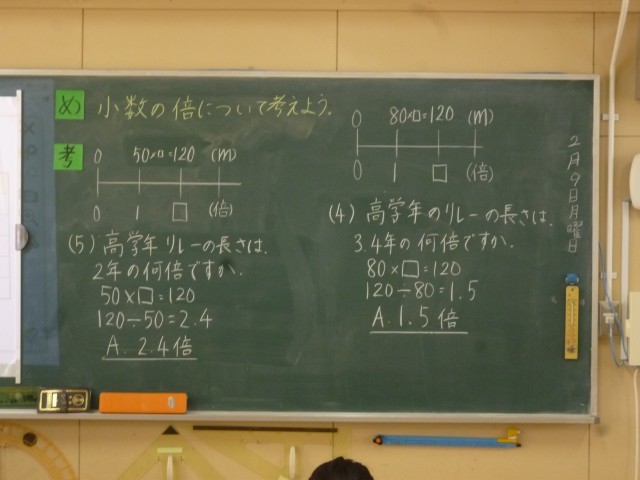 め 小数の倍について考えよう。
考
0 50×□=120 (m)
0 1 □ (倍)
(5) 高学年リレーの長さは、
2年の何倍ですか。
50×□=120
120÷50=2.4
A. 2.4倍
0 80×□=120 (m)
0 1 □ (倍)
(4) 高学年のリレーの長さは、
3.4年の何倍ですか。
80×□=120
120÷80=1.5
A. 1.5倍
2月9日月曜日